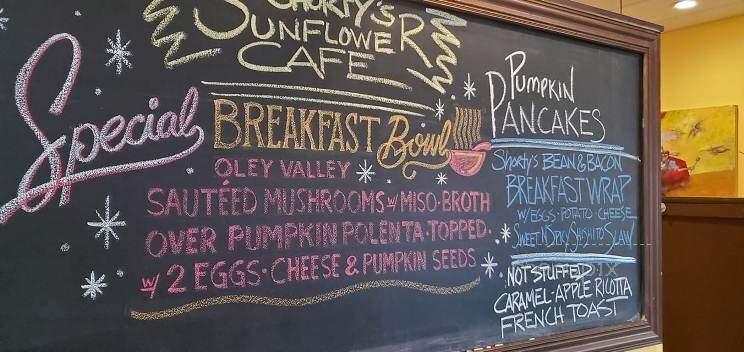 Shorty's
SUNFLOWER
CAFE
Special
BREAKFAST Bowl
OLEY VALLEY
SAUTÉED MUSHROOMS W/ MISO-BROTH
OVER PUMPKIN POLENTA-TOPPED-
W/ 2 EGGS·CHEESE & PUMPKIN SEEDS
PUMPKIN
PANCAKES
Shorty's BEAN & BACON
BREAKFAST WRAP
W/ EGGS·POTATO CHEESE
SWEET N SPICY SHISHITO SLAW
NOT STUFFED
CARAMEL-APPLE RICOTTA
FRENCH TOAST